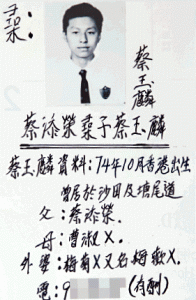 尋
蔡
玉
麟
蔡添榮棄子蔡玉麟
蔡玉麟資料:74年10月香港出生
曾居於沙田及塘尾道
父:蔡添榮.
母:曹淑X.
外婆:梅有X又名梅軟X.
電:9 (有酬)